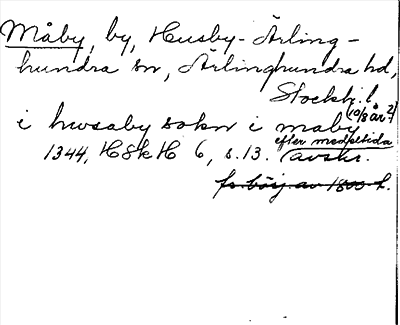 Måby, by, Husby-Ärling-
hundra sn, Ärlinghundra hd,
Stockh. l.
i hwsaby sokn i maby (10/8 år ?)
1344, HSkH 6, s. 13. (efter medeltida avskr.
fr. börj. av 1500-t.